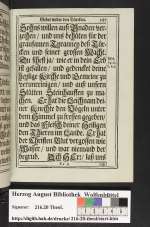 Gebet wider den Türcken.
Sohns willen auß Gnaden ver-
zeihen / und uns behüten für der
grausamen Tyranney deß Tür-
cken und seiner grossen Macht.
Du siehest ja / wie er in dein Erb
ist gefallen / und gedencket deine
heilige Kirche und Gemeine zu
verunreinigen / und aus
Stätten Steinhauffen zu ma-
chen. Er hat die Leichnam dei-
ner Knechte den Vögeln unter
dem Himmel zu fressen gegeben /
und das Fleisch deiner Heiligen
den Thieren im Lande. Er hat
der Christen Blut vergossen wie
Wasser / und war niemand der
begrub. Ach HErr / laß uns
Herzog August Bibliothek Wolfenbüttel
Signatur: 216.20 Theol.
http://diglib.hab.de/drucke/216-20-theol/start.htm